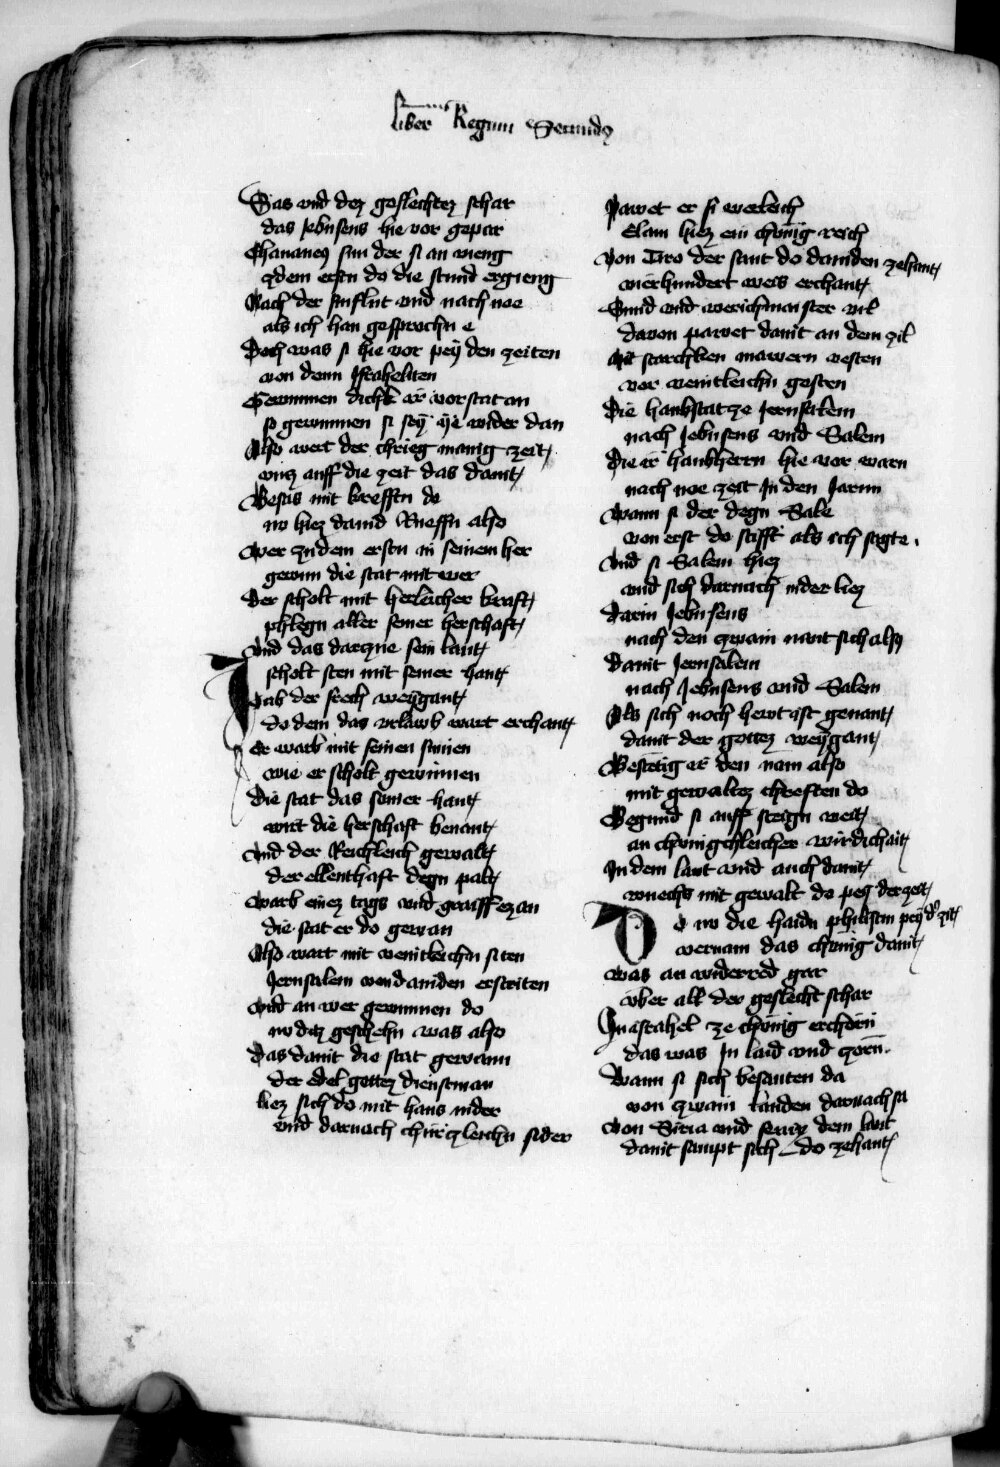 liber Regum Secundus
Das vnd dez geslechtez schar
das Jebusens hie vor gepar
Chananeus sun der si an vieng
zdem erstn do die stund ergieng
Nach der sinflut vnd nach noe
als ich han gesprochn e
Doch was si hie vor pey den zeiten
von denn Israheliten
Gewunnen dickh ir vorstat an
so gewunnen si sey ye wider dan
Also wert der chrieg manig zeit
vncz auff die zeit das dauit
Besas mit krefftn do
no hiez dauid Rueffn also
Wer zu dem erstn in seinem her
gewun die stat mit wer
Der scholt mit herleicher kraft
phlegn aller seiner herschaft
Vnd das darczue sein lant
scholt sten mit seiner hant
Joab der frech weygant
do dem das vrlawb wart erchant
Er warb mit seinen sinnen
wie er scholt gewinnen
Die stat das seiner hant
wurt die herschaft benant
Vnd der Reichleich gewalt
der ellenthaft degn palt
Warb einez tags vnd graiff ez an
die stat er do gewan
Also wart mit veintleichn siten
Jerusalem von dauiden erstriten
Vnd an wer gewunnen do
no daz geschehn was also
Das dauit die stat gewann
der edel gottez dienstman
liez sich do mit haus nider
vnd darnach churczleichn sider
Pawet er si werleich
Elam hiez ein chunig reich
Von Tiro der sant do dauiden zehant
vierhundert weis erchant
Smid vnd werichmaister vil
dauon pawet dauit an dem zil
Mit starchken mawern vesten
vor veintleichn gesten
Die haubstat ze Jerusalem
nach Jebusens vnd Salem
Die ir haubherrn hie vor warn
nach noe zeit In den Jarnn
Wann si der degn Sale
von erst do stifft als ich sagte
Vnd si Salem hiez
vnd sich darnach nider liez
Darin Jebusens
nach den zwain nant sich also
Damit Jerusalem
nach Jebusens vnd Salem
Als sich noch hewt ist genant
damit der gottez weygant
Bestetig ir den nam also
mit gewaltez chreften do
Begund si auff steign weit
an chunigchleicher wirdichait
In dem lant vnd auch dauit
wuechs mit gewalt do pey der zeit
Do no die haidn philistim pey der zit
vernam das chunig dauit
Was an widerred gar
vber all der geslecht schar
In Israhel ze chunig erchorn
das was In laid vnd zorn
Wann si sich besanten da
von zwain landen darnach sa
Von Siria vnd dem lant
dauit sampt sich do zehant